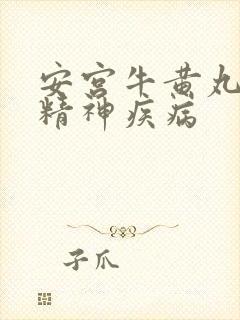 安宫牛黄丸
精神疾病
子爪